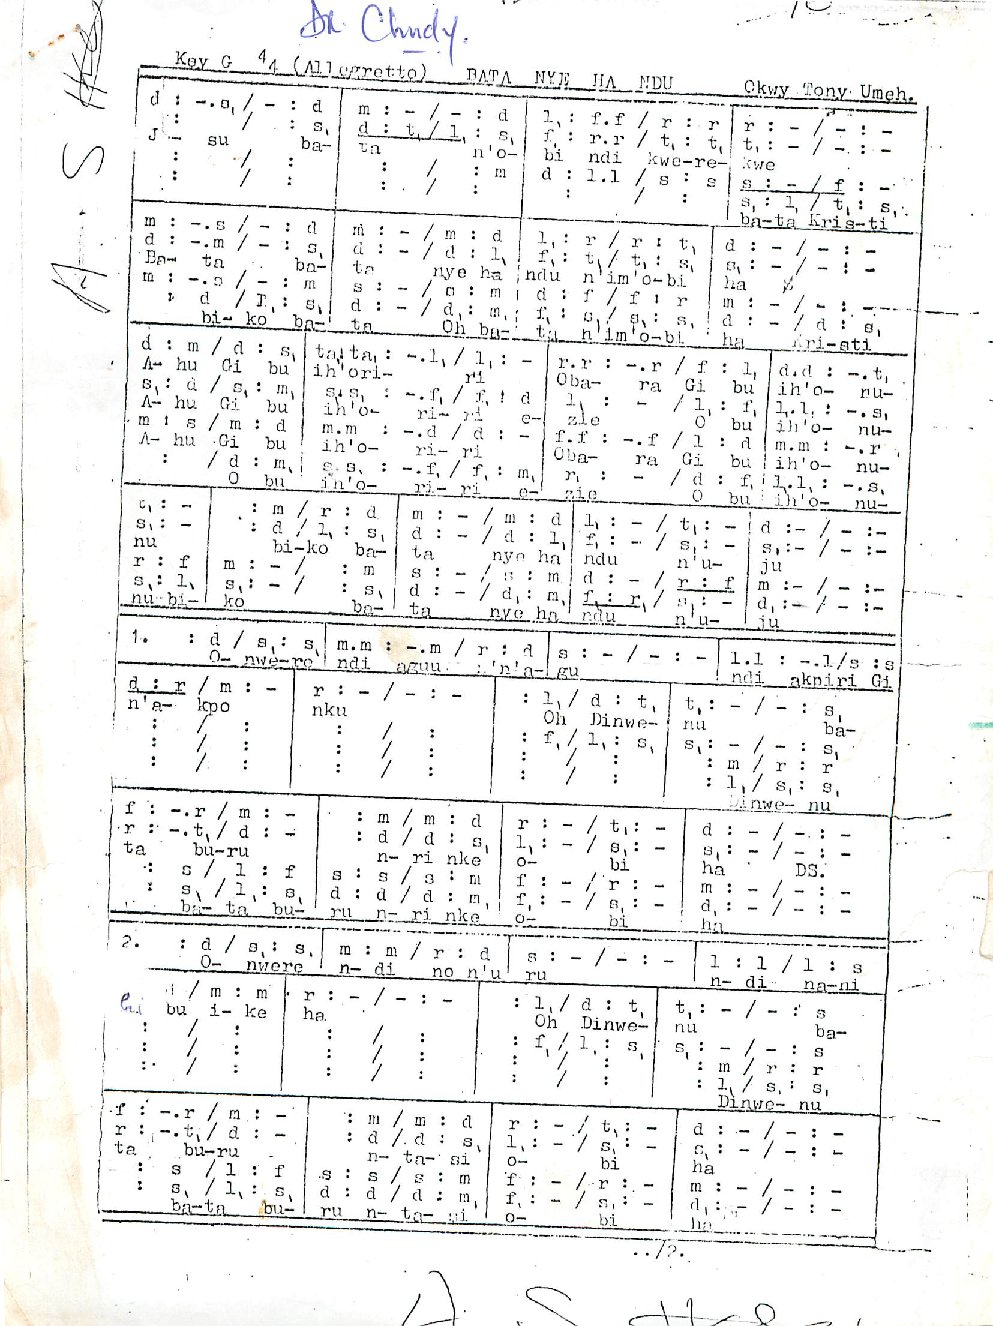 Dr Chudy.
Key G 4/4 (Allegretto) BATA NYE HA NDU Okwy Tony Umeh.
d : -.s, / - : d | m : - / - : d | l, : f.f / r : r | r : - / - : -
: / : s, | d : t, / l, : s, | f, : r.r / t, : t, | t, : - / - : -
su ba- | ta n'o- | bi ndi kwe-re- | kwe
: / : | : / : m | d : l.l / s : s | s : - / f : -
: / : | : / : | : / : | s, : l, / t, : s,
ba-ta Kris-ti
m : -.s / - : d | m : - / m : d | l, : r / r : t, | d : - / - : -
d : -.m / - : s, | d : - / d : l, | f, : t, / t, : s, | s, : - / - : -
Ba- ta ba- | ta nye ha | ndu n'im'o-bi | ha
m : -.s / - : m | s : - / s : m | d : f / f : r | m : - / - : -
: d / l, : s, | d : - / d, : m, | f, : s, / s, : s, | d : - / d : s,
bi- ko ba- | ta Oh ba- | ta n'im'o-bi | ha Kri-sti
d : m / d : s, | ta, ta, : -.l, / l, : - | r.r : -.r / f : l, | d.d : -.t,
A- hu Gi bu | ih'ori- ri | Oba- ra Gi bu | ih'o- nu-
s, : d / s, : m, | s, s, : -.f, / f, : d | l, : - / l, : f, | l.l, : -.s,
A- hu Gi bu | ih'o- ri- ri e- | zie O bu | ih'o- nu-
m : s / m : d | m.m : -.d / d : - | f.f : -.f / l : d | m.m : -.r
A- hu Gi bu | ih'o- ri- ri | Oba- ra Gi bu | ih'o- nu-
: / d : m, | s, s, : -.f, / f, : m, | r, : - / d : f, | l.l, : -.s,
O bu | ih'o- ri- ri e- | zie O bu | ih'o- nu-
t, : - | : m / r : d | m : - / m : d | l, : - / t, : - | d : - / - : -
s, : - | : d / l, : s, | d : - / d : l, | f, : - / s, : - | s, : - / - : -
nu | bi-ko ba- | ta nye ha | ndu n'u- | ju
r : f | m : - / : m | s : - / s : m | d : - / r : f | m : - / - : -
s, : l, | s, : - / : s, | d : - / d, : m, | f, : r, / s, : - | d, : - / - : -
nu-bi- | ko ba- | ta nye ha | ndu n'u- | ju
1. : d / s, : s, | m.m : -.m / r : d | s : - / - : - | l.l : -.l / s : s
O- nwe-re | ndi aguu n'n'a- | gu | ndi akpiri Gi
d : r / m : - | r : - / - : - | : l, / d : t, | t, : - / - : s,
n'a- kpo | nku | Oh Dinwe- | nu ba-
: / : | : / : | : f, / l, : s, | s, : - / - : s,
: / : | : / : | : / : | : m / r : r
: / : | : / : | : / : | : l, / s, : s,
Dinwe- nu
f : -.r / m : - | : m / m : d | r : - / t, : - | d : - / - : -
r : -.t, / d : - | : d / d : s, | l, : - / s, : - | s, : - / - : -
ta bu-ru | n- ri nke | o- bi | ha DS.
: s / l : f | s : s / s : m | f : - / r : - | m : - / - : -
: s, / l, : s, | d : d / d : m, | f, : - / s, : - | d, : - / - : -
ba- ta bu- | ru n- ri nke | o- bi | ha
2. : d / s, : s, | m : m / r : d | s : - / - : - | l : l / l : s
O- nwere | n- di no n'u | ru | n- di na-ni
/ m : m | r : - / - : - | : l, / d : t, | t, : - / - : s
Gi bu i- ke | ha | Oh Dinwe- | nu ba-
: / : | : / : | : f, / l, : s, | s, : - / - : s
: / : | : / : | : / : | : m / r : r
: / : | : / : | : / : | : l, / s, : s,
Dinwe- nu
f : -.r / m : - | : m / m : d | r : - / t, : - | d : - / - : -
r : -.t, / d : - | : d / d : s, | l, : - / s, : - | s, : - / - : -
ta bu-ru | n- ta- si | o- bi | ha
: s / l : f | s : s / s : m | f : - / r : - | m : - / - : -
: s, / l, : s, | d : d / d : m, | f, : - / s, : - | d, : - / - : -
ba-ta bu- | ru n- ta- si | o- bi | ha
../2.